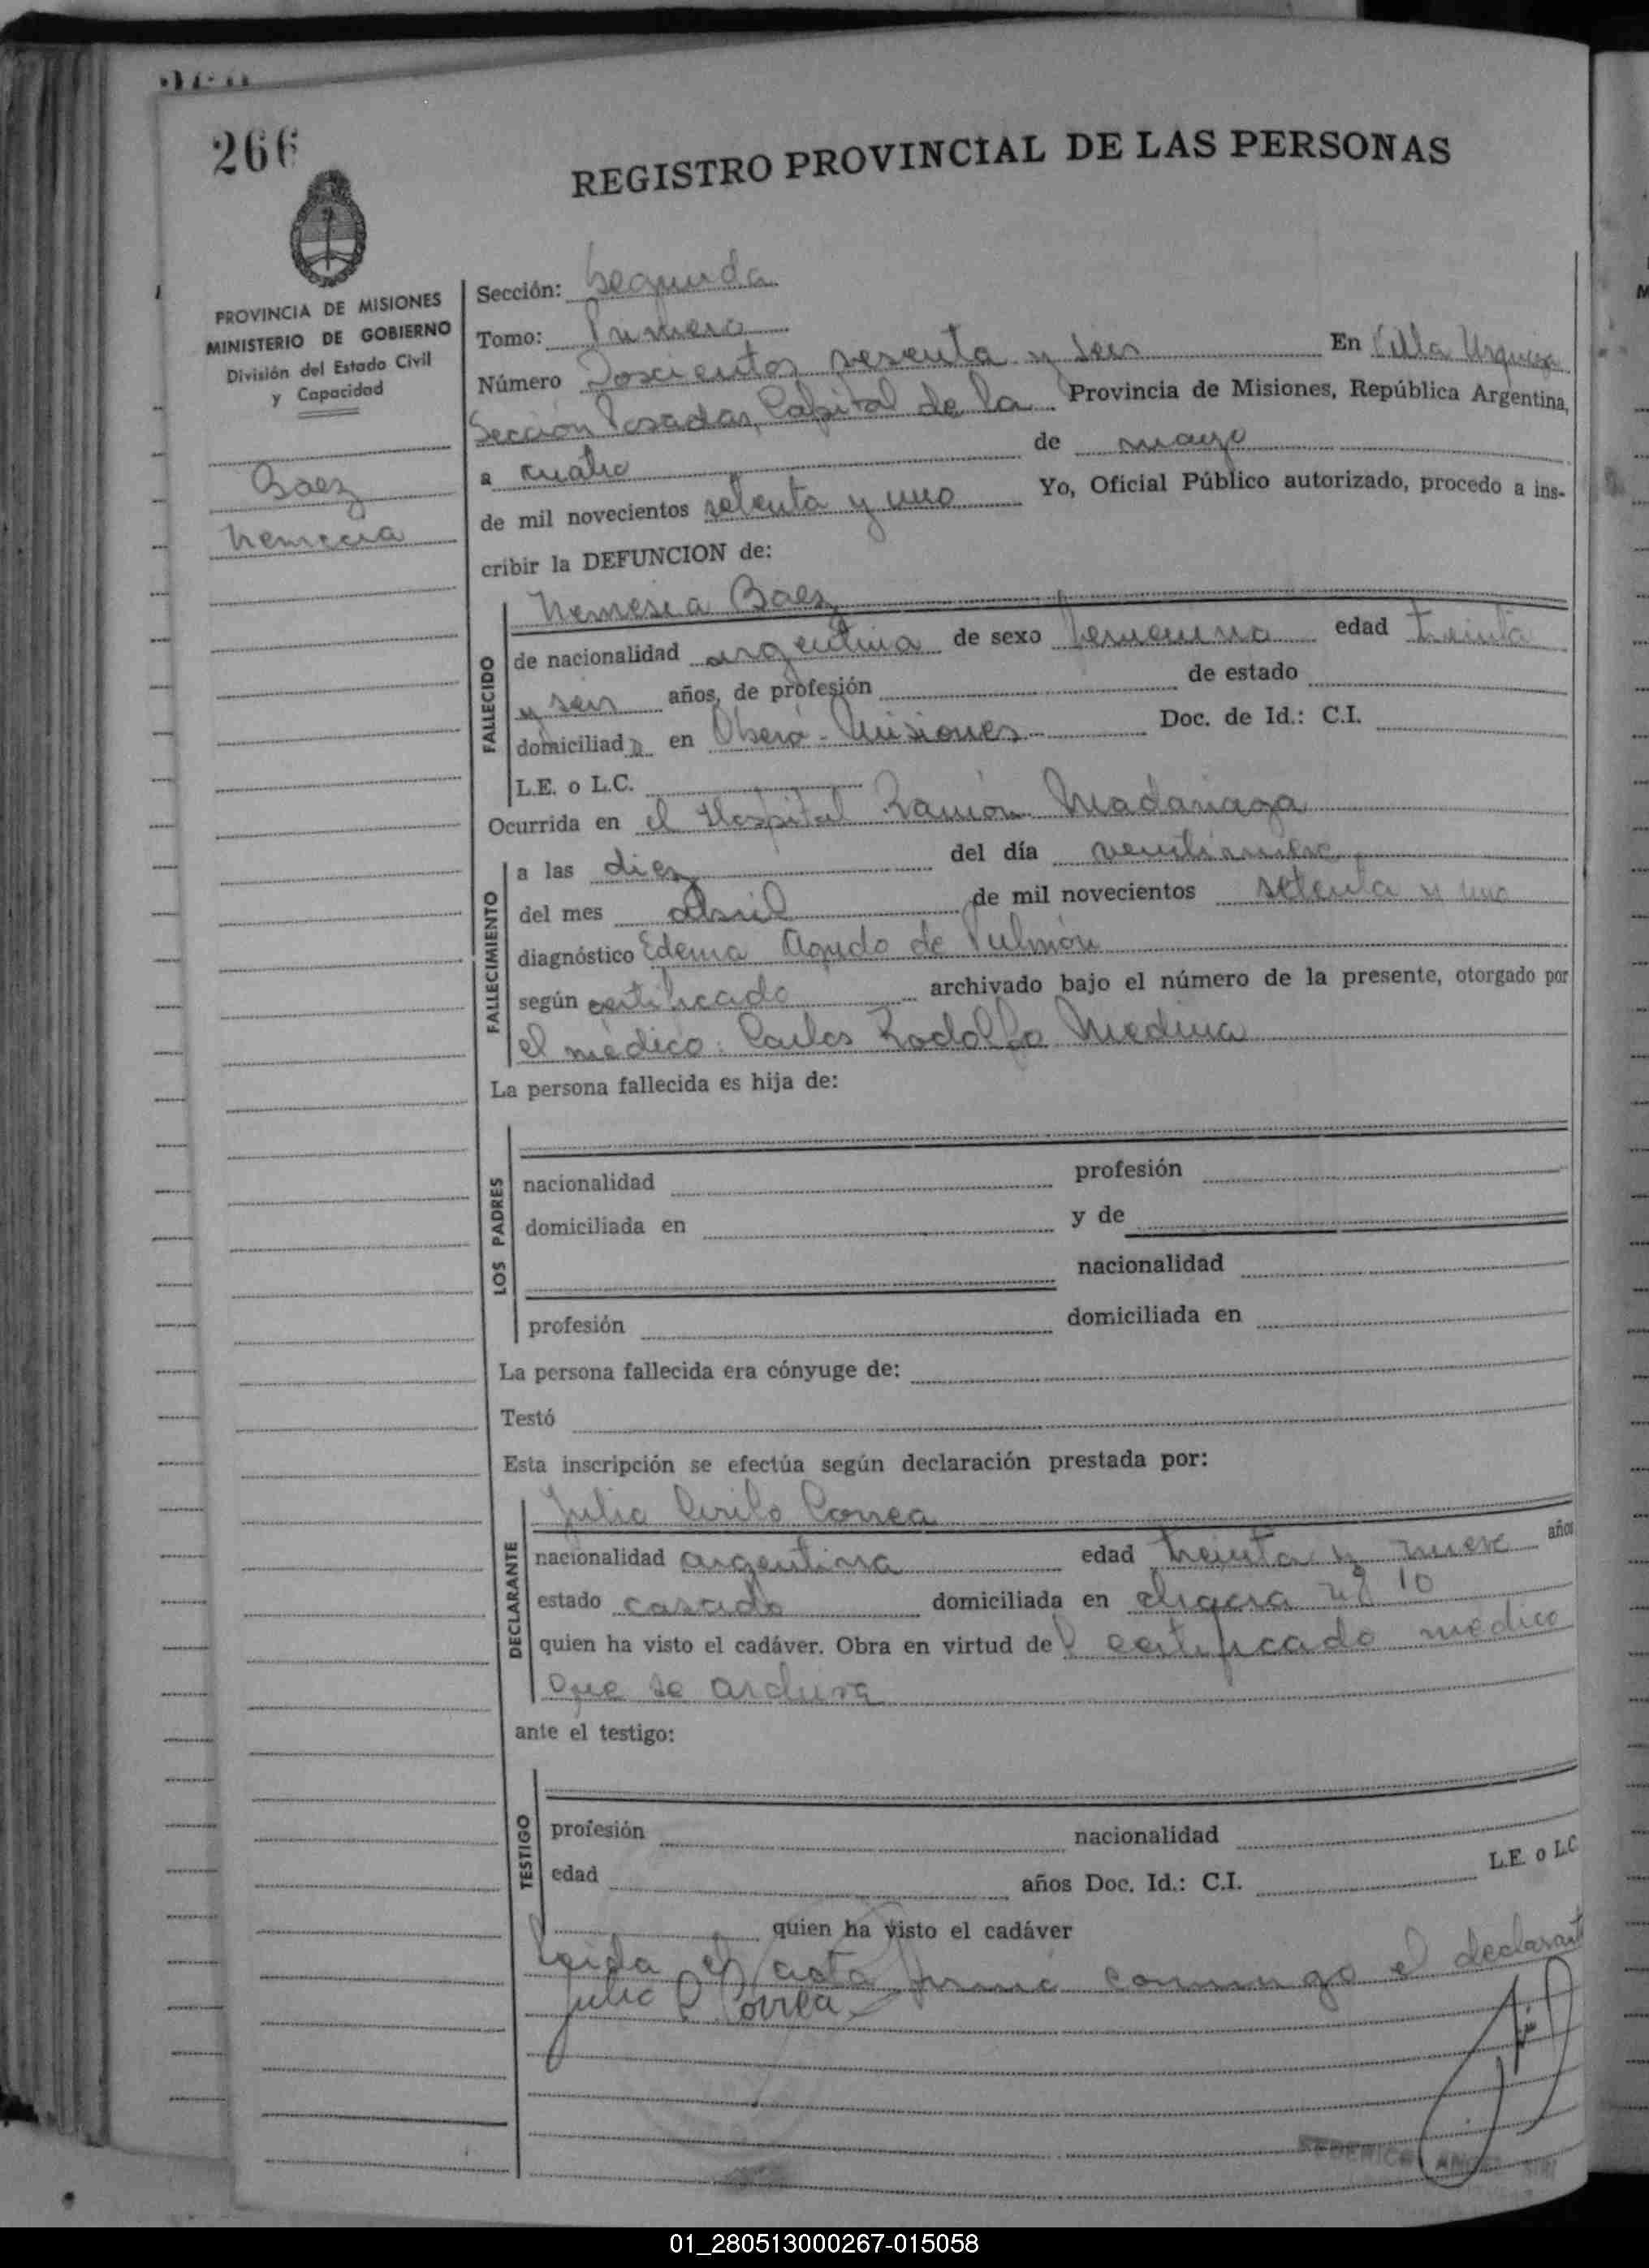 266
REGISTRO PROVINCIAL DE LAS PERSONAS
PROVINCIA DE MISIONES
MINISTERIO DE GOBIERNO
División del Estado Civil
y Capacidad
Baez
Nemecia
Sección: Segunda
Tomo: Primero
Número Doscientos sesenta y seis En Villa Urquiza
Sección Posadas, Capital de la Provincia de Misiones, República Argentina,
a cuatro de mayo
de mil novecientos setenta y uno Yo, Oficial Público autorizado, procedo a ins-
cribir la DEFUNCION de:
Nemesia Baez
FALLECIDO
de nacionalidad argentina de sexo femenino edad treinta
y seis años, de profesión de estado
domiciliad a en Oberá - Misiones Doc. de Id.: C.I.
L.E. o L.C.
Ocurrida en el Hospital Ramón Madariaga
FALLECIMIENTO
a las diez del día veintinueve
del mes abril de mil novecientos setenta y uno
diagnóstico Edema Agudo de Pulmón
según certificado archivado bajo el número de la presente, otorgado por
el médico: Carlos Rodolfo Medina
La persona fallecida es hija de:
LOS PADRES
nacionalidad profesión
domiciliada en y de
nacionalidad
profesión domiciliada en
La persona fallecida era cónyuge de:
Testó
Esta inscripción se efectúa según declaración prestada por:
Julio Cirilo Correa
DECLARANTE
nacionalidad argentina edad treinta y nueve años
estado casado domiciliada en chacra nº 10
quien ha visto el cadáver. Obra en virtud del certificado médico
que se archiva
ante el testigo:
TESTIGO
profesión nacionalidad
edad años Doc. Id.: C.I. L.E. o L.C
quien ha visto el cadáver
Leida el acta firma conmigo el declarante
Julio C. Correa
FEDERICO ANGEL
01_280513000267-015058